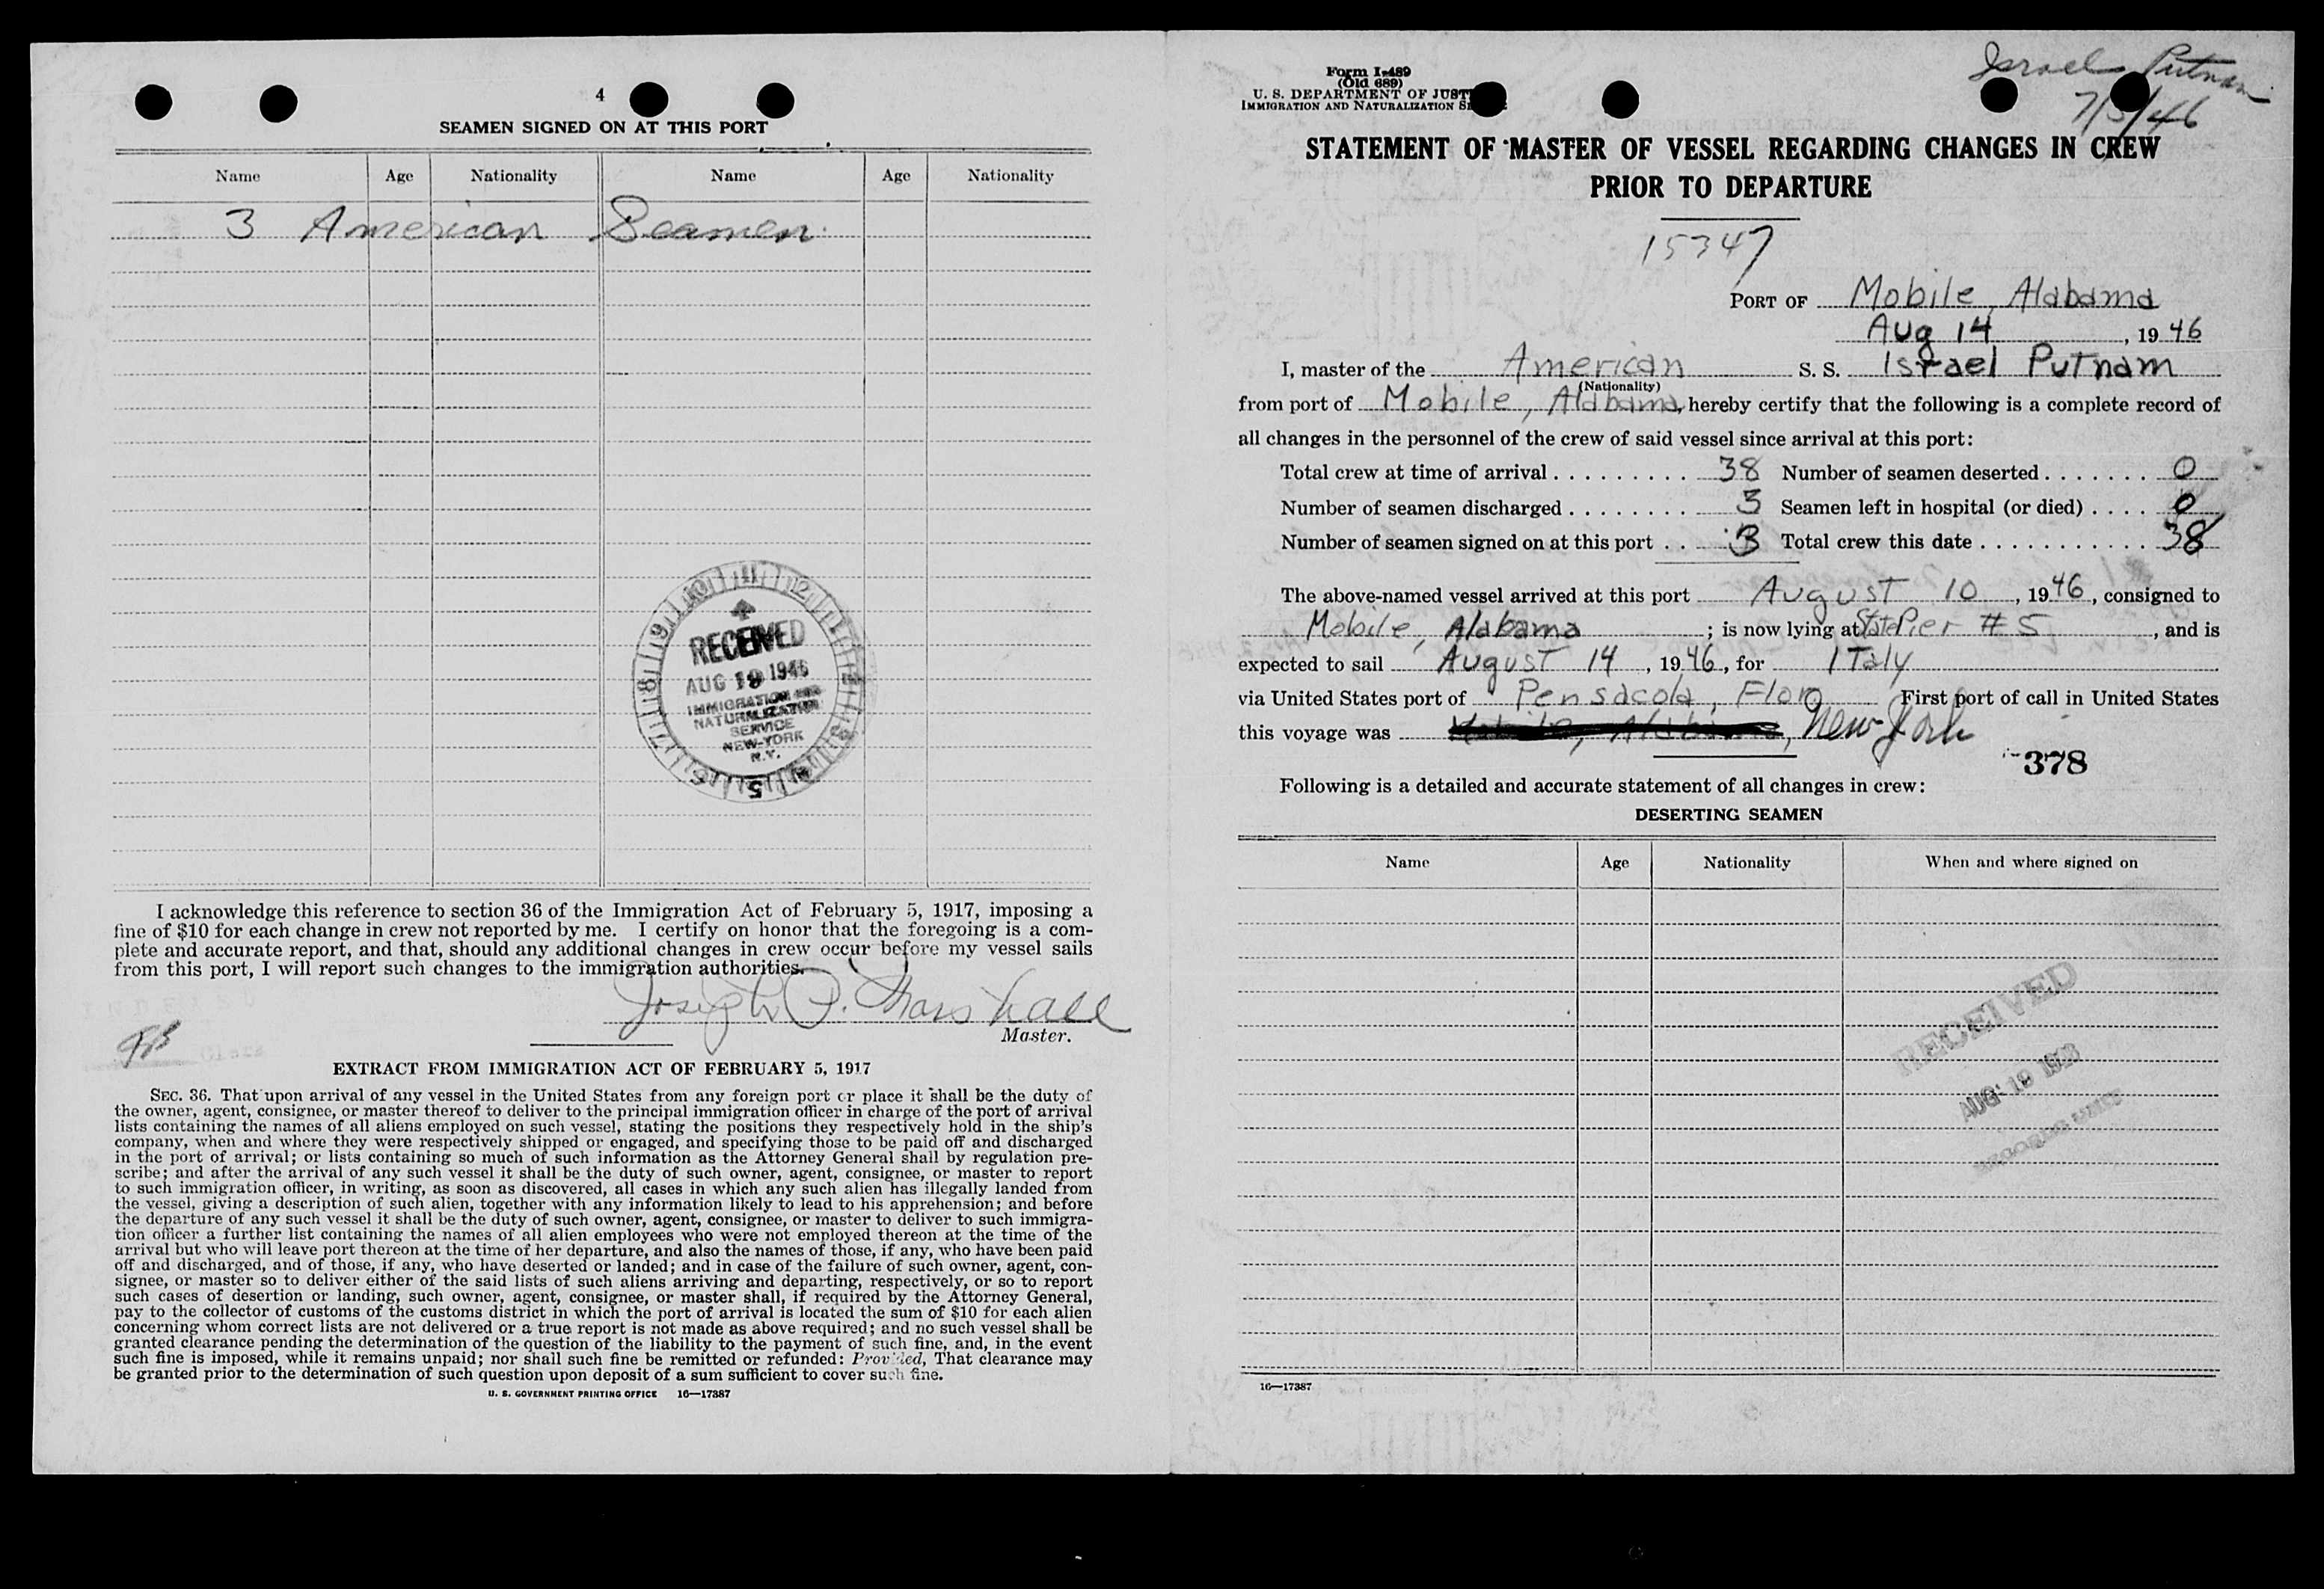 4
SEAMEN SIGNED ON AT THIS PORT
Name Age Nationality Name Age Nationality
3 American Seamen
RECEIVED
AUG 19 1946
IMMIGRATION AND
NATURALIZATION
SERVICE
NEW-YORK
N.Y.
I acknowledge this reference to section 36 of the Immigration Act of February 5, 1917, imposing a
fine of $10 for each change in crew not reported by me. I certify on honor that the foregoing is a com-
plete and accurate report, and that, should any additional changes in crew occur before my vessel sails
from this port, I will report such changes to the immigration authorities.
Joseph P. Marshall
Master.
EXTRACT FROM IMMIGRATION ACT OF FEBRUARY 5, 1917
SEC. 36. That upon arrival of any vessel in the United States from any foreign port or place it shall be the duty of
the owner, agent, consignee, or master thereof to deliver to the principal immigration officer in charge of the port of arrival
lists containing the names of all aliens employed on such vessel, stating the positions they respectively hold in the ship's
company, when and where they were respectively shipped or engaged, and specifying those to be paid off and discharged
in the port of arrival; or lists containing so much of such information as the Attorney General shall by regulation pre-
scribe; and after the arrival of any such vessel it shall be the duty of such owner, agent, consignee, or master to report
to such immigration officer, in writing, as soon as discovered, all cases in which any such alien has illegally landed from
the vessel, giving a description of such alien, together with any information likely to lead to his apprehension; and before
the departure of any such vessel it shall be the duty of such owner, agent, consignee, or master to deliver to such immigra-
tion officer a further list containing the names of all alien employees who were not employed thereon at the time of the
arrival but who will leave port thereon at the time of her departure, and also the names of those, if any, who have been paid
off and discharged, and of those, if any, who have deserted or landed; and in case of the failure of such owner, agent, con-
signee, or master so to deliver either of the said lists of such aliens arriving and departing, respectively, or so to report
such cases of desertion or landing, such owner, agent, consignee, or master shall, if required by the Attorney General,
pay to the collector of customs of the customs district in which the port of arrival is located the sum of $10 for each alien
concerning whom correct lists are not delivered or a true report is not made as above required; and no such vessel shall be
granted clearance pending the determination of the question of the liability to the payment of such fine, and, in the event
such fine is imposed, while it remains unpaid; nor shall such fine be remitted or refunded: Provided, That clearance may
be granted prior to the determination of such question upon deposit of a sum sufficient to cover such fine.
U. S. GOVERNMENT PRINTING OFFICE 16—17387
Form I-489
(Old 689)
U. S. DEPARTMENT OF JUST
IMMIGRATION AND NATURALIZATION SE
Israel Putnam
7/5/46
STATEMENT OF MASTER OF VESSEL REGARDING CHANGES IN CREW
PRIOR TO DEPARTURE
15347
PORT OF Mobile, Alabama
Aug 14, 1946
I, master of the American S. S. Israel Putnam
(Nationality)
from port of Mobile, Alabama, hereby certify that the following is a complete record of
all changes in the personnel of the crew of said vessel since arrival at this port:
Total crew at time of arrival . . . . . . . . . 38 Number of seamen deserted . . . . . . . 0
Number of seamen discharged . . . . . . . . 3 Seamen left in hospital (or died) . . . . 0
Number of seamen signed on at this port . . 3 Total crew this date . . . . . . . . . . . . 38
The above-named vessel arrived at this port August 10, 1946, consigned to
Mobile, Alabama; is now lying at State Pier #5, and is
expected to sail August 14, 1946, for ITaly
via United States port of Pensacola, Flor First port of call in United States
this voyage was Mobile, Alabama, New York
378
Following is a detailed and accurate statement of all changes in crew:
DESERTING SEAMEN
Name Age Nationality When and where signed on
RECEIVED
AUG 19
16—17387